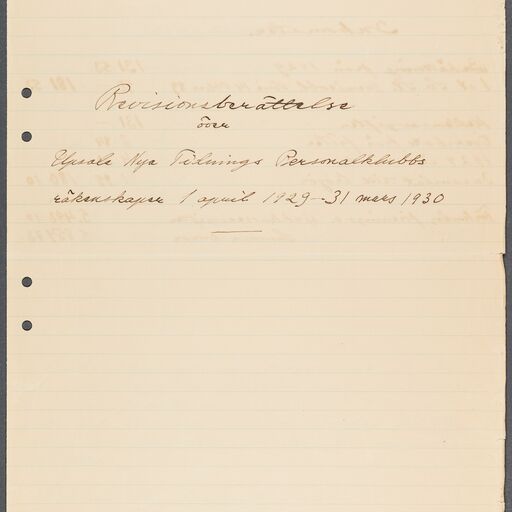 Revisionsberättelse
över
Upsala Nya Tidnings Personalklubbs
räkenskaper 1 april 1929–31 mars 1930